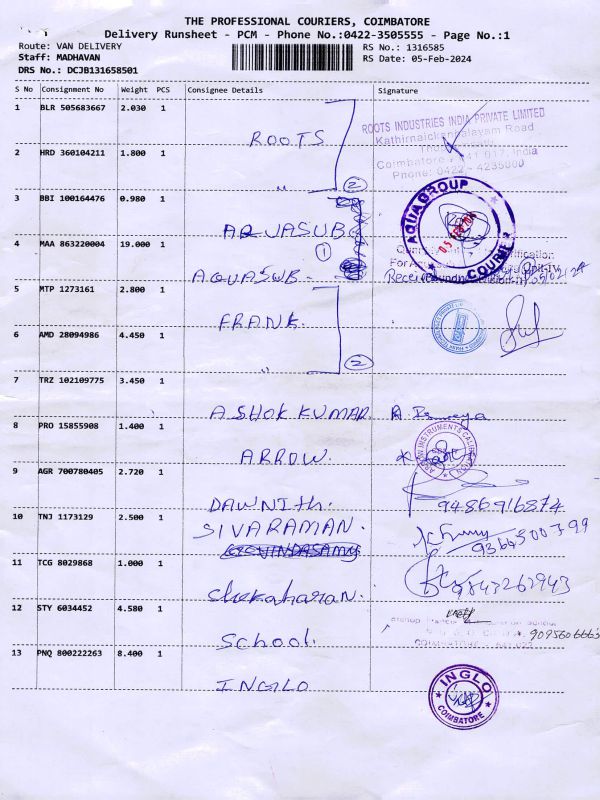 THE PROFESSIONAL COURIERS, COIMBATORE
Delivery Runsheet - PCM - Phone No.:0422-3505555 - Page No.:1
Route: VAN DELIVERY
RS No.: 1316585
Staff: MADHAVAN
RS Date: 05-Feb-2024
DRS No.: DCJB131658501
S No Consignment No Weight PCS Consignee Details Signature
1 BLR 505683667 2.030 1
ROOTS
ROOTS INDUSTRIES INDIA PRIVATE LIMITED
Kathirnaickenpalayam Road
Coimbatore 641 017, India
Phone: 0422 - 4235000
2 HRD 360104211 1.800 1
"
2
3 BBI 100164476 0.980 1
AQUASUB
1
AQUAGROUP
05
COURIER
4 MAA 863220004 19.000 1
AQUASUB
5 MTP 1273161 2.800 1
FRANK
6 AMD 28094986 4.450 1
"
2
7 TRZ 102109775 3.450 1
ASHOK KUMAR
8 PRO 15855908 1.400 1
ARROW.
INSTRUMENTS
9 AGR 700780405 2.720 1
DAWNITH.
9486916874
10 TNJ 1173129 2.500 1
SIVARAMAN.
GOVINDASAMY
11 TCG 8029868 1.000 1
9843262943
12 STY 6034452 4.580 1
School.
9095606663
13 PNQ 800222263 8.400 1
INGLO
INGLO
COIMBATORE